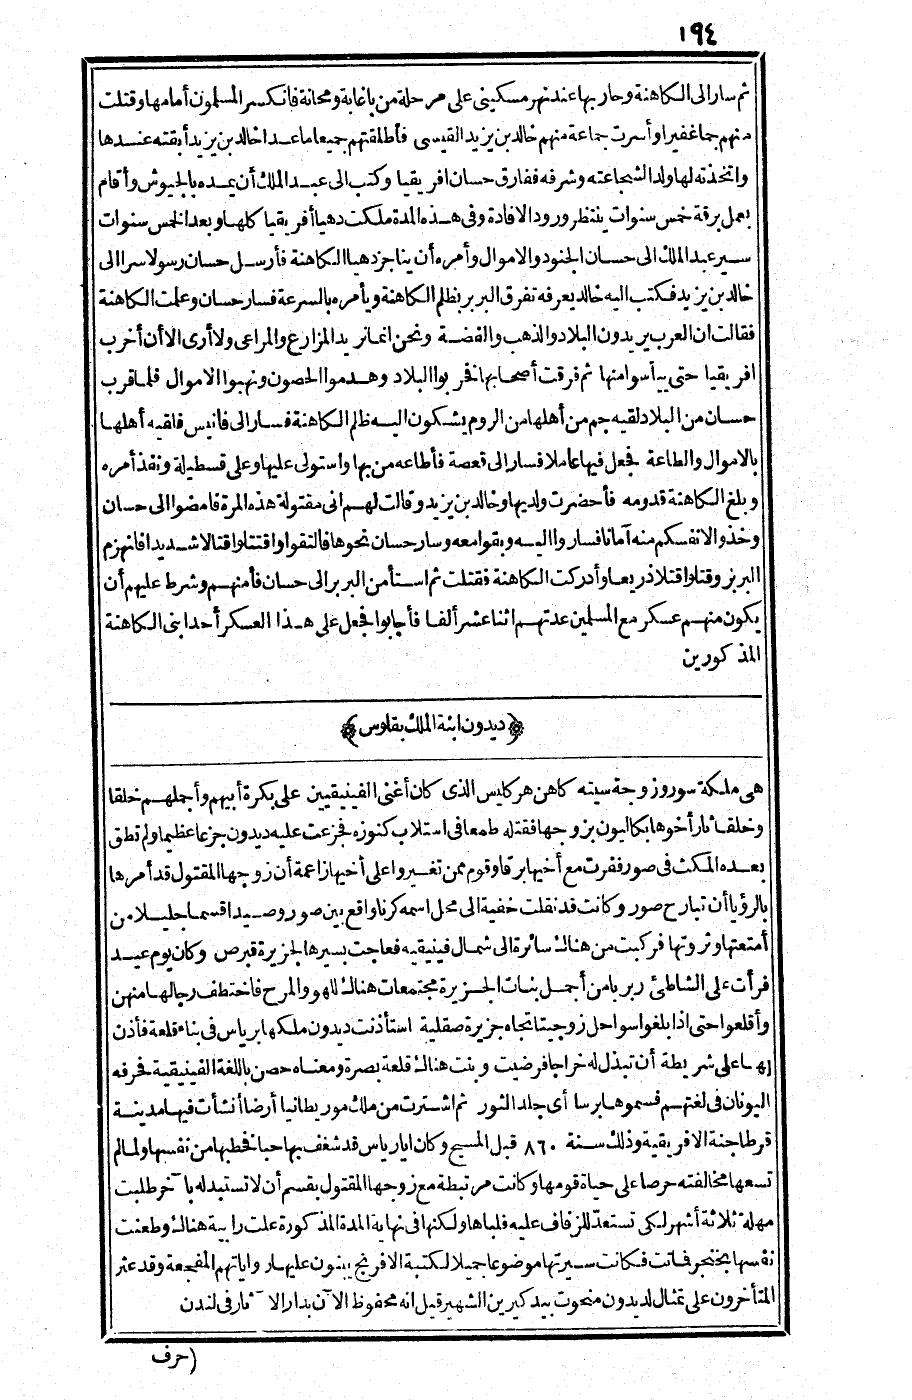 ١٩٤
ثم سار الى الكاهنة وحاربها عند نهر مسكينى على مرحلة من باغاية ومجانة فانكسر المسلمون أمامها وقتلت
منهم جما غفيرا وأسرت جماعة منهم خالد بن يزيد القيسى فأطلقتهم جميعا ما عدا خالد بن يزيد أبقته عندها
واتخذته لها ولدا لشجاعته وشرفه ففارق حسان افريقيا وكتب الى عبد الملك أن يمده بالجيوش وأقام
بعمل برقة خمس سنوات ينتظر ورود الافادة وفى هذه المدة ملكت دهيا أفريقيا كلها وبعد الخمس سنوات
سير عبد الملك الى حسان الجنود والاموال وأمره أن يناجز دهيا الكاهنة فأرسل حسان رسولا سرا الى
خالد بن يزيد فكتب اليه خالد يعرفه تفرق البربر بظلم الكاهنة ويأمره بالسرعة فسار حسان وعلمت الكاهنة
فقالت ان العرب يريدون البلاد والذهب والفضة ونحن انما نريد المزارع والمراعى ولا أرى الا أن أخرب
افريقيا حتى ييأسوا منها ثم فرقت أصحابها فخربوا البلاد وهدموا الحصون ونهبوا الاموال فلما قرب
حسان من البلاد لقيه جم من أهلها من الروم يشكون اليه ظلم الكاهنة فسار الى فانيس فلقيه أهلها
بالاموال والطاعة فجعل فيها عاملا فسار الى قعصة فأطاعه من بها واستولى عليها وعلى قسطيلة ونفذ أمره
وبلغ الكاهنة قدومه فأحضرت ولديها وخالد بن يزيد وقالت لهم انى مقتولة هذه المرة فامضوا الى حسان
وخذوا لانفسكم منه آمانا فساروا اليه وبقوا معه وسار حسان نحوها فالتقوا واقتتلوا قتالا شديدا فانهزم
البربر وقتلوا قتلا ذريعا وأدركت الكاهنة فقتلت ثم استأمن البربر الى حسان فأمنهم وشرط عليهم أن
يكون منهم عسكر مع المسلمين عدتهم اثنا عشر ألفا فأجابوا فجعل على هذا العسكر أحد ابنى الكاهنة
المذكورين
﴿ديدون ابنة الملك بقلوس﴾
هى ملكة سور وزوجة سيته كاهن هركليس الذى كان أغنى الفينيقيين على بكرة أبيهم وأجملهم خلقا
وخلقا ثار أخوها بكاليون بزوجها فقتله طمعا فى استلاب كنوزه فجزعت عليه ديدون جزعا عظيما ولم تطق
بعده المكث فى صور ففرت مع أخيها برقا وقوم ممن تغيروا على أخيها زاعمة أن زوجها المقتول قد أمرها
بالرؤيا أن تبارح صور وكانت قد نقلت خفية الى محل اسمه كرنا واقع بين صور وصيدا قسما جليلا من
أمتعتها وثروتها فركبت من هناك سائرة الى شمال فينيقيه فعاجت بسيرها لجزيرة قبرص وكان يوم عيد
فرأت على الشاطئ ربربا من أجمل بنات الجزيرة مجتمعات هناك للهو والمرح فاختطف رجالها منهن
وأقلعوا حتى اذا بلغوا سواحل زوجيتا تجاه جزيرة صقلية استأذنت ديدون ملكها يرياس فى بناء قلعة فأذن
لها على شريطة أن تبذل له خراجا فرضيت وبنت هناك قلعة بصرة ومعناه حصن باللغة الفينيقية فحرفه
اليونان فى لغتهم فسموها برسا أى جلد الثور ثم اشترت من ملك موريطانيا أرضا أنشأت فيها مدينة
قرطاجنة الافريقية وذلك سنة ٨٦٠ قبل المسيح وكان ايارياس قد شغف بها حبا فخطبها من نفسها ولما لم
تسعها مخالفته حرصا على حياة قومها وكانت مرتبطة مع زوجها المقتول بقسم أن لا تستبدله بآخر طلبت
مهلة ثلاثة أشهر لكى تستعد للزفاف عليه فلباها ولكنها فى نهاية المدة المذكورة علت رابية هناك وطعنت
نفسها بخنجر فماتت فكانت سيرتها موضوعا جميلا لكتبة الافرنج يبنون عليها رواياتهم المفجعة وقد عثر
المتأخرون على تمثال لديدون منحوت بيد كيرين الشهير قيل انه محفوظ الآن بدار الآثار فى لندن
(حرف